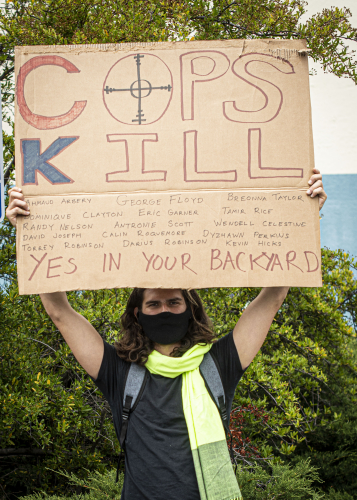 COPS
KILL
AHMAUD ARBERY GEORGE FLOYD BREONNA TAYLOR
DOMINIQUE CLAYTON ERIC GARNER TAMIR RICE
RANDY NELSON ANTRONIE SCOTT WENDELL CELESTINE
DAVID JOSEPH CALIN ROQUEMORE DYZHAWN PERKINS
TORREY ROBINSON DARIUS ROBINSON KEVIN HICKS
YES IN YOUR BACKYARD